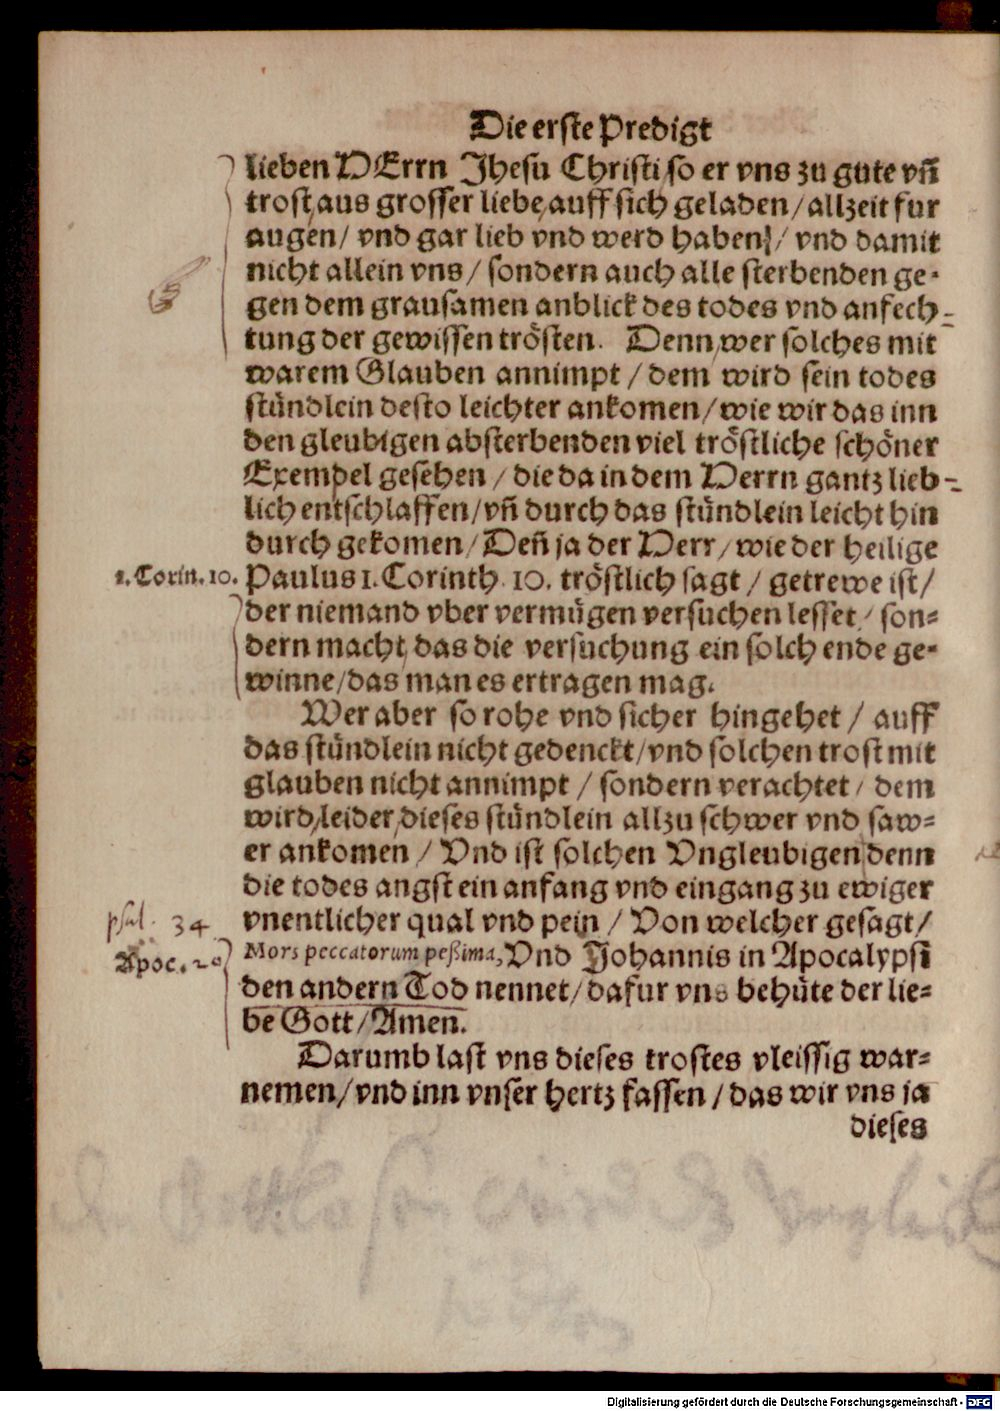 Die erste Predigt
lieben HErrn Jhesu Christi/so er vns zu gute vñ
trost/aus grosser liebe/auff sich geladen/allzeit fur
augen/ vnd gar lieb vnd werd haben/ vnd damit
nicht allein vns/ sondern auch alle sterbenden ge-
gen dem grausamen anblick des todes vnd anfech-
tung der gewissen trösten. Denn/wer solches mit
warem Glauben annimpt/dem wird sein todes
stündlein desto leichter ankomen/wie wir das inn
den gleubigen absterbenden viel tröstliche schöner
Exempel gesehen/die da in dem Herrn gantz lieb-
lich entschlaffen/vñ durch das stündlein leicht hin
durch gekomen/Deñ ja der Herr/wie der heilige
1. Corin. 10.
Paulus 1. Corinth. 10. tröstlich sagt/ getrewe ist/
der niemand vber vermügen versuchen lesset/ son-
dern macht/das die versuchung ein solch ende ge-
winne/das man es ertragen mag.
Wer aber so rohe vnd sicher hingehet/ auff
das stündlein nicht gedenckt/vnd solchen trost mit
glauben nicht annimpt/ sondern verachtet/ dem
wird/leider/dieses stündlein allzu schwer vnd saw-
er ankomen/ Vnd ist solchen Vngleubigen denn
die todes angst ein anfang vnd eingang zu ewiger
psal. 34
vnentlicher qual vnd pein/ Von welcher gesagt/
Apoc. 20
Mors peccatorum peßima, Vnd Johannis in Apocalypsi
den andern Tod nennet/dafur vns behüte der lie-
be Gott/Amen.
Darumb last vns dieses trostes vleissig war-
nemen/vnd inn vnser hertz fassen/das wir vns ja
dieses
Digitalisierung gefördert durch die Deutsche Forschungsgemeinschaft - DFG